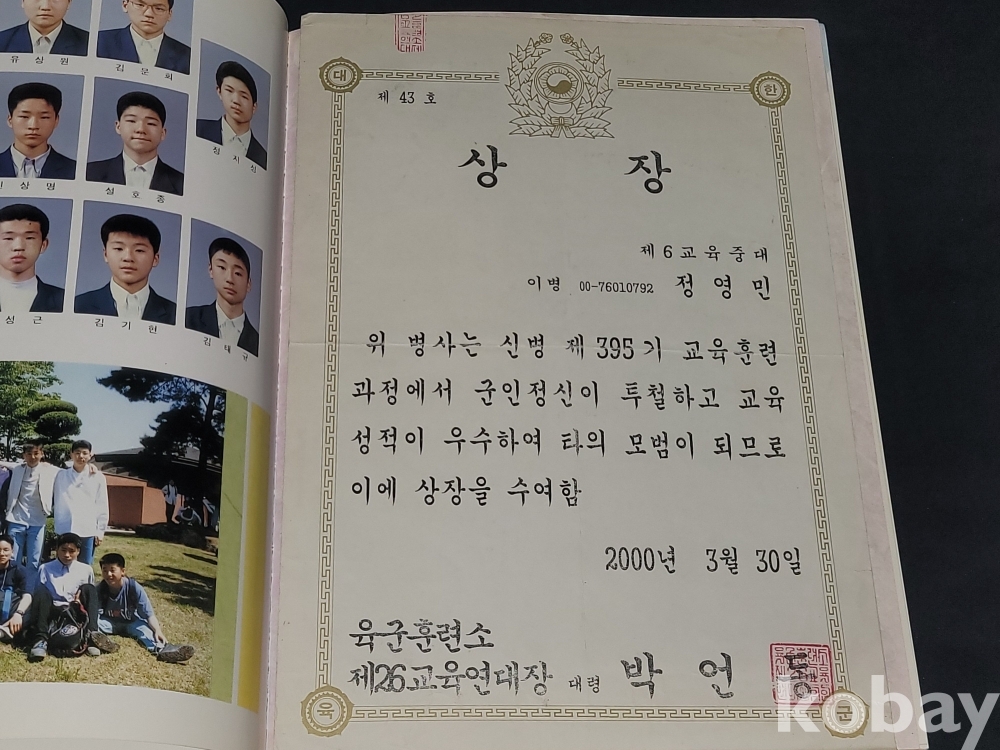 유상원
김문희
상명
설호종
성근
김기현
김태규
대
한
제 43 호
상 장
제6교육중대
이병 00-76010792 정영민
위 병사는 신병 제395기 교육훈련
과정에서 군인정신이 투철하고 교육
성적이 우수하여 타의 모범이 되므로
이에 상장을 수여함
2000년 3월 30일
육군훈련소
제26교육연대장 대령 박언동
육
군
kobay